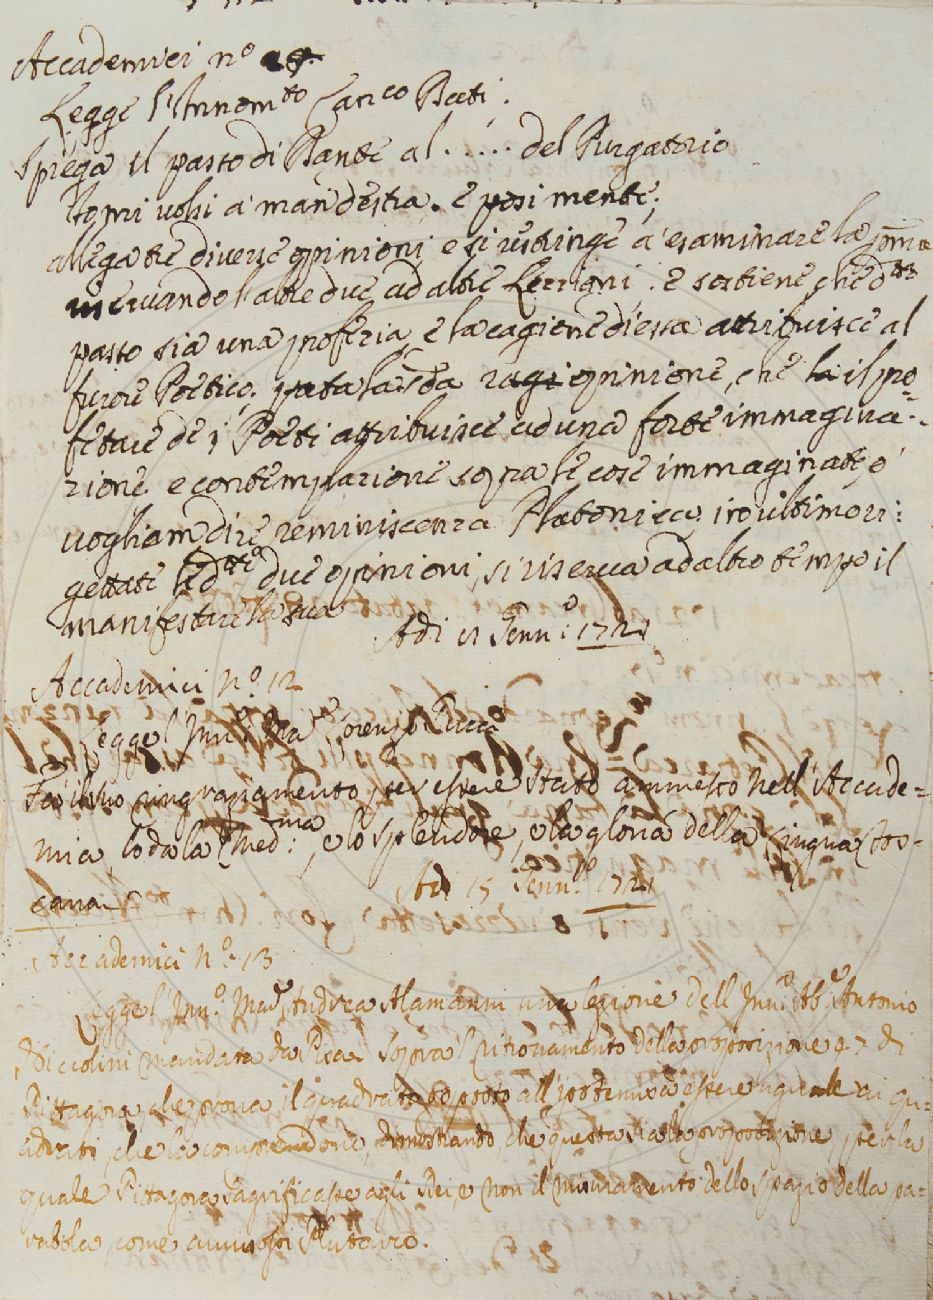 Accademici n.o
Legge l'Innom.to Canco Bati.
Spiega il passo di Dante al ..... del Purgatorio
Io mi volsi a man destra, e posi mente,
allegate diverse opinioni e si restringe a esaminare la
riservando l'altre due ad altre Lezzioni. e sostiene che d.to
passo sia una profezia, e la cagione di essa attribuisce al
furore Poetico. opinione, che il pro=
fetare de i Poeti attribuisce ad una forte immagina=
zione e contemplazione sopra le cose immaginate, o
vogliam dire reminiscenza Platonica, in ultimo ri=
gettate le d.tte due opinioni, si riserva ad altro tempo il
manifestare la sua
Adi 11 Genn.o 1721
Accademici N.o 12
Legge l'Inn.o Lorenzo Ricci
Fa il suo ringraziamento per essere stato ammesso nell'Accade=
mia loda la Med.ma, e lo splendore, e la gloria della Lingua Tos=
cana.
Adi 15 Genn.o 1721
Accademici N.o 13
Legge l'Inn.o Andrea Alamanni una lezione dell'Inn.o Ab.e Antonio
Niccolini mandata da Pisa sopra 'l ritrovamento della proposizione 47 di
Pittagora, che prova il quadrato opposto all'ipotenusa essere uguale ai qu=
adrati, che lo comprendono, dimostrando, che questa sia la proposizione, per la
quale Pittagora sagrificasse agli Dei, e non il misuramento dello spazio della pa=
rabbla, come Plutarco.